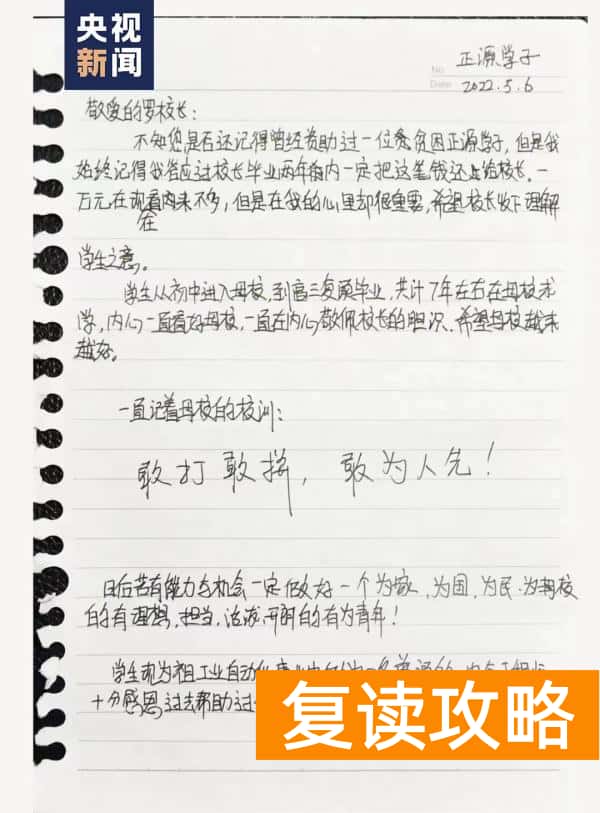 央视
新闻
No
正源学子
Date
2022.5.6
敬爱的罗校长:
不知您是否还记得曾经资助过一位贫困正源学子,但是我
始终记得我答应过校长毕业两年内一定把这笔钱还给校长。一
万元在现在看来不多,但是在我的心里却很重要,希望校长收下理解
学生之意。
学生从初中进入母校,到高三复读毕业,共计7年左右在母校求
学,内心一直看好母校,一直在内心敬佩校长的胆识、希望母校越来
越好。
一直记着母校的校训:
敢打敢拼,敢为人先!
日后若有能力与机会一定做好一个为家,为国,为民,为母校
的有理想,担当,的有为青年!
学生现为祖工业自动化
十分感恩过去帮助过
复读攻略